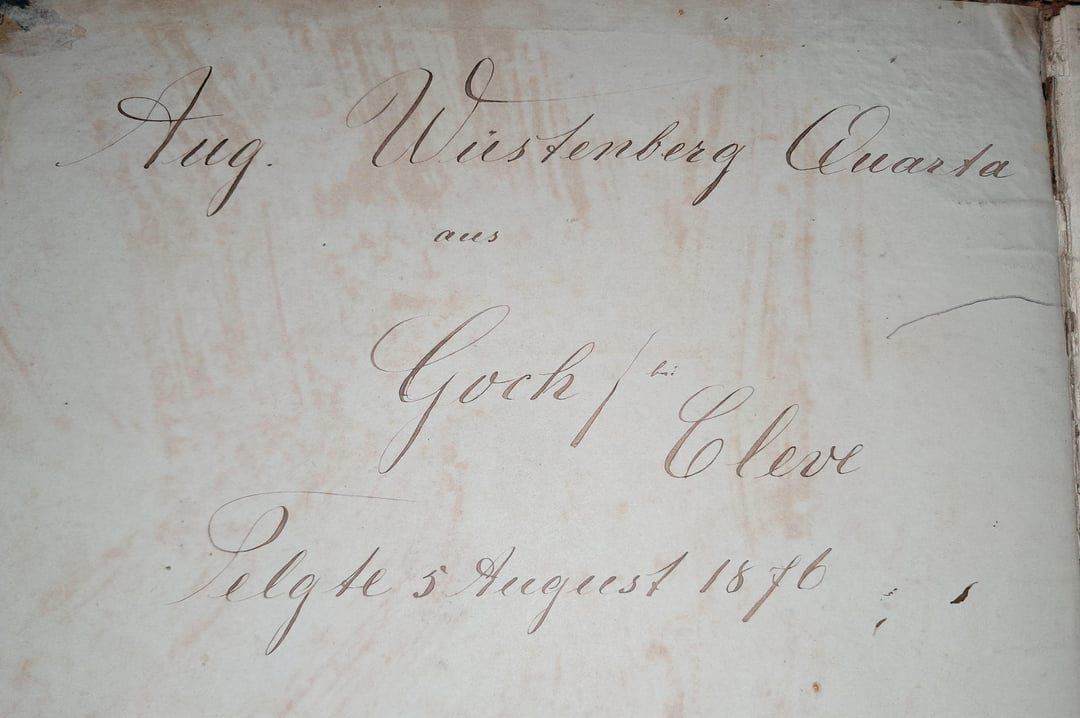 Aug. Wüstenberg Quarta
aus
Goch / bei
Cleve
Telgte 5 August 1876